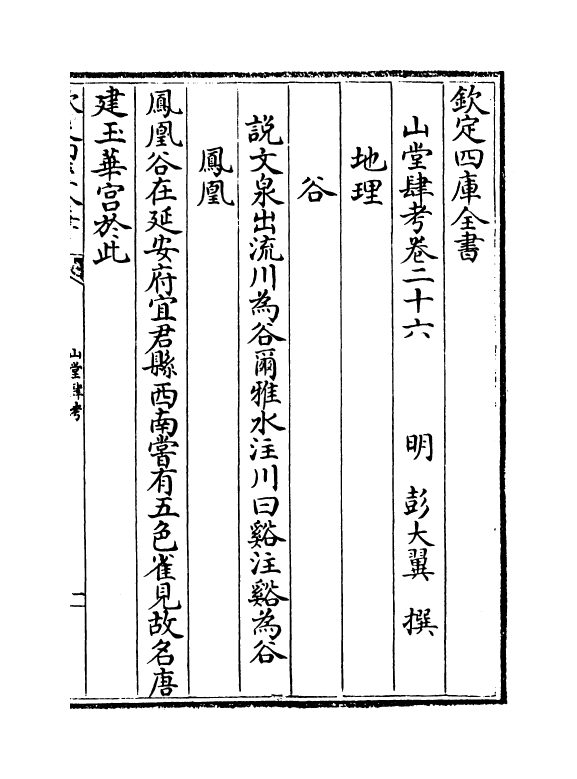 欽定四庫全書
山堂肆考卷二十六　　明　彭大翼　撰
地理
谷
説文泉出流川為谷爾雅水注川曰谿注谿為谷
鳳凰
鳳凰谷在延安府宜君縣西南嘗有五色雀見故名唐
建玉華宫於此
山堂肆考